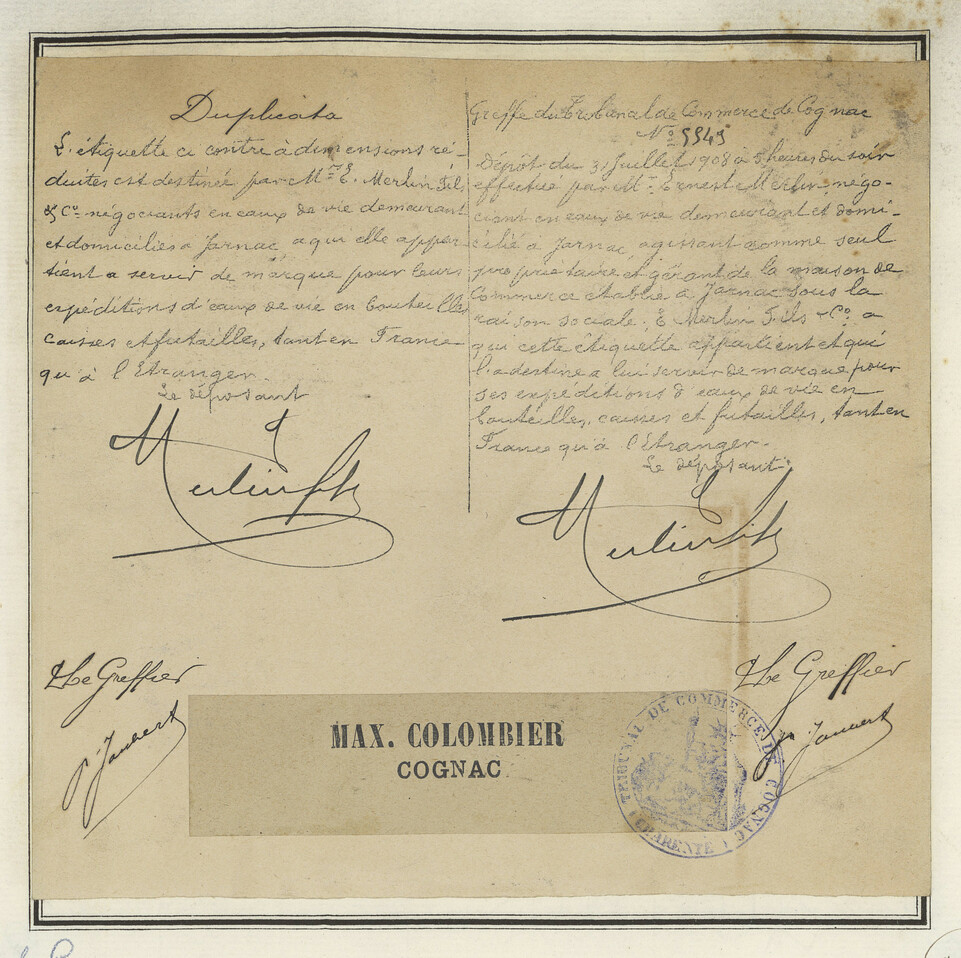 Duplicata
L'étiquette ci contre à dimensions ré-
duites est destinée par Mrs E. Merlin Fils
& Co. négociants en eaux de vie demeurant
et domiciliés à Jarnac, a qui elle appar-
tient a servir de marque pour leurs
expéditions d'eaux de vie en bouteilles
caisses et futailles, tant en France
qu'à l'Etranger.
Le déposant
Merlin fils
Greffe du Tribunal de Commerce de Cognac
No 5545
Dépôt du 31 Juillet 1908 à 5 heures du soir
effectué par Mr. Ernest Merlin, négo-
ciant en eaux de vie demeurant et domi-
cilié à Jarnac, agissant comme seul
propriétaire et gérant de la maison de
Commerce établie à Jarnac sous la
raison sociale, E Merlin Fils & Co. a
qui cette étiquette appartient et qui
l'a destine a lui servir de marque pour
ses expéditions d'eaux de vie en
bouteilles, caisses et futailles, tant en
France qu'à l'Etranger.
Le déposant
Merlin fils
Le Greffier
Le Greffier
MAX. COLOMBIER
COGNAC
TRIBUNAL DE COMMERCE DE COGNAC
(CHARENTE)